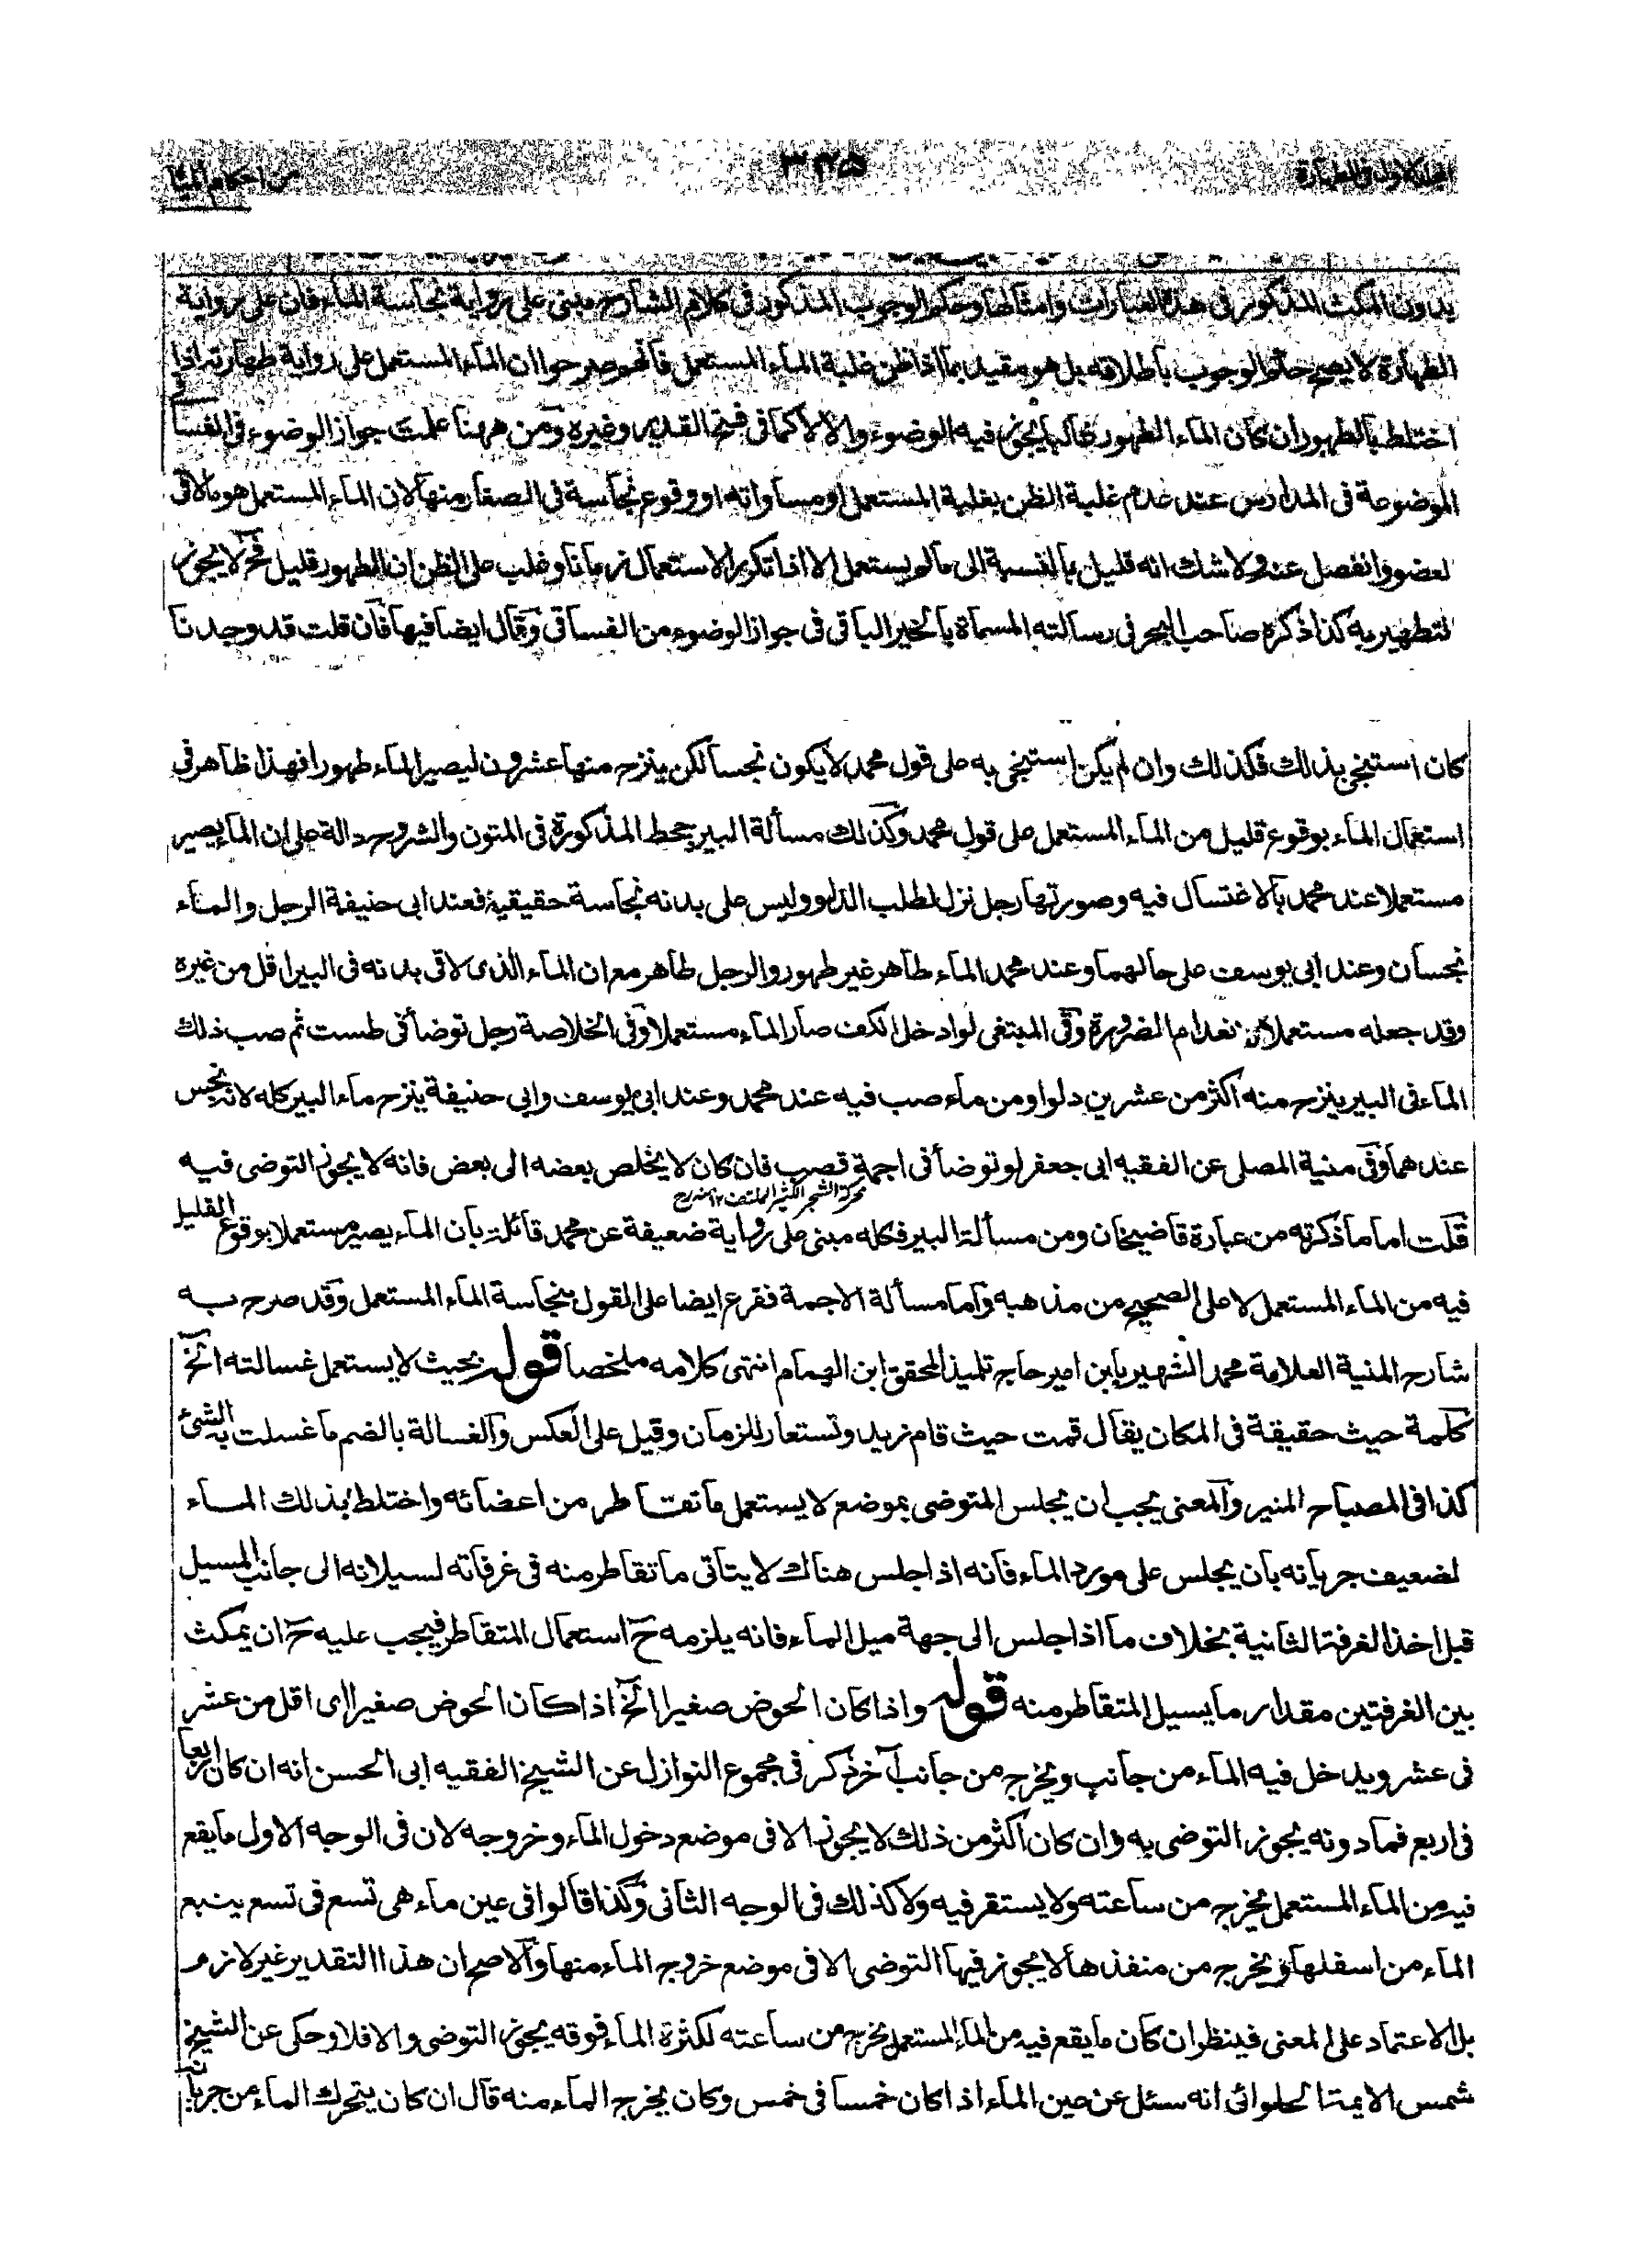 المجلد الاول فى الطهارة ٣٤٥ من احكام المياه
بدون المكث المذكور فى هذه العبارات وامثالها وحكم الوجوب المذكور فى كلام الشارح مبنى على رواية نجاسة الماء فان على رواية
الطهارة لا يصح حكم الوجوب باطلاقه بل هو مقيد بما اذا ظن غلبة الماء المستعمل فانهم صرحوا ان الماء المستعمل على رواية طهارته اذا
اختلط بالطهور ان كان الماء الطهور غالبا يجوز فيه الوضوء والا لا كما فى فتح القدير وغيره ومن ههنا علمت جواز الوضوء فى الفساقى
الموضوعة فى المدارس عند عدم غلبة الظن بغلبة المستعمل او مساواته او وقوع نجاسة فى الصغار منها لان الماء المستعمل هو ما لاقى
لعضو وانفصل عنه ولا شك انه قليل بالنسبة الى ما لم يستعمل الا اذا تكرر الاستعمال زمانا وغلب على الظن ان الطهور قليل فح لا يجوز
لتطهير به كذا ذكره صاحب البحر فى رسالته المسماة بالخير الباقى فى جواز الوضوء من الفساقى وقال ايضا فيها فان قلت قد وجدنا
كان استنجى بذالك فكذلك وان لم يكن استنجى به على قول محمد لا يكون نجسا لكن ينزح منها عشرون ليصير الماء طهورا فهذا ظاهر فى
استعمال الماء بوقوع قليل من الماء المستعمل على قول محمد وكذلك مسألة البير جحط المذكورة فى المتون والشروح دالة على ان الماء يصير
مستعملا عند محمد بالاغتسال فيه وصورتها رجل نزل لطلب الدلو وليس على بدنه نجاسة حقيقية فعند ابى حنيفة الرجل والماء
نجسان وعند ابى يوسف على حالهما وعند محمد الماء طاهر غير طهور والرجل طاهر مع ان الماء الذى لاقى بدنه فى البير اقل من غيره
وقد جعله مستعملا لانعدام الضرورة وفى المبتغى لو ادخل الكف صار الماء مستعملا وفى الخلاصة رجل توضأ فى طست ثم صب ذلك
الماء فى البير ينزح منه اكثر من عشرين دلوا ومن ماء صب فيه عند محمد وعند ابى يوسف وابى حنيفة ينزح ماء البير كله لانه نجس
عندهما وفى منية المصلى عن الفقيه ابى جعفر لو توضأ فى اجمة قصب فان كان لا يخلص بعضه الى بعض فانه لا يجوز التوضى فيه
محركة الشجر الكثير الملتف ١٢ منه رح
قلت اما ما ذكرته من عبارة قاضيخان ومن مسألة البير فكله مبنى على رواية ضعيفة عن محمد قائلة بان الماء يصير مستعملا بوقوع القليل
فيه من الماء المستعمل لا على الصحيح من مذهبه واما مسألة الاجمة ففرع ايضا على القول بنجاسة الماء المستعمل وقد صرح به
شارح المنية العلامة محمد الشهير بابن امير حاج تلميذ المحقق ابن الهمام انتهى كلامه ملخصا قوله بحيث لا يستعمل غسالته الخ
كلمة حيث حقيقة فى المكان يقال قمت حيث قام زيد وتستعار للزمان وقيل على العكس والغسالة بالضم ما غسلت به الشئ
كذا فى المصباح المنير والمعنى يجب ان يجلس المتوضى بموضع لا يستعمل ما تقاطر من اعضائه واختلط بذلك الماء
لضعيف جريانه بان يجلس على مورد الماء فانه اذا جلس هناك لا يتأتى ما تقاطر منه فى غرفاته لسيلانه الى جانب المسيل
قبل اخذ الغرفة الثانية بخلاف ما اذا جلس الى جهة ميل الماء فانه يلزمه ح استعمال المتقاطر فيجب عليه ح ان يمكث
بين الغرفتين مقدار ما يسيل المتقاطر منه قوله واذا كان الحوض صغيرا الخ اذا كان الحوض صغيرا اى اقل من عشر
فى عشر ويدخل فيه الماء من جانب ويخرج من جانب آخر ذكر فى مجموع النوازل عن الشيخ الفقيه ابى الحسن انه ان كان اربعا
فى اربع فما دونه يجوز التوضى به وان كان اكثر من ذلك لا يجوز الا فى موضع دخول الماء وخروجه لان فى الوجه الاول ما يقع
فيه من الماء المستعمل يخرج من ساعته ولا يستقر فيه ولا كذلك فى الوجه الثانى وكذا قالوا فى عين ماء هى تسع فى تسع ينبع
الماء من اسفلها ويخرج من منفذها لا يجوز فيها التوضى الا فى موضع خروج الماء منها والاصح ان هذا التقدير غير لازم
بل الاعتماد على المعنى فينظر ان كان ما يقع فيه من الماء المستعمل يخرج من ساعته لكثرة الماء فوقه يجوز التوضى والا فلا وحكى عن الشيخ
شمس الايمة الحلوائى انه سئل عن حين الماء اذا كان خمسا فى خمس وكان يخرج الماء منه قال ان كان يتحرك الماء من جريانه